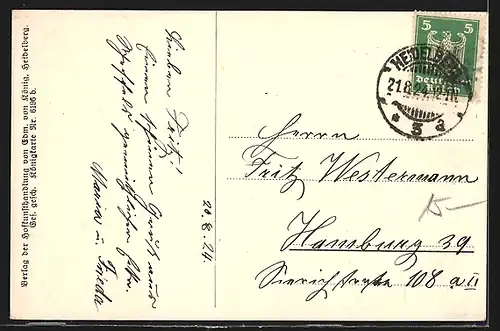 Verlag der Hofkunsthandlung von Edm. von König, Heidelberg.
Ges. gesch. Königkarte Nr. 6196 b.
Lieben Fritz!
Einen schönen Gruß aus
Mama u. Frieda
20.8.24.
5 5
HEIDELBERG
21.8.24.
* 3 a
Herrn
Fritz Westermann
Hamburg 39
Sierichstraße 108 a II
15-